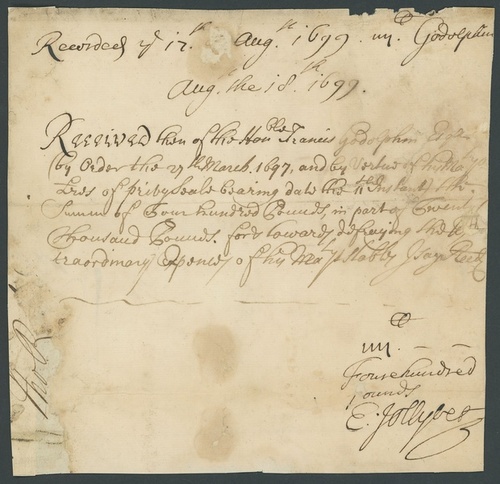 Recorded ye 17th Augst 1699. iiijC Godolphin
Augst the 18th 1699.
Received then of the Honble Francis Godolphin Esqr
by Order the 27th March. 1697, and by Vertue of his Ma
ties of privy Seale bearing date the Instant the
Summ of Four hundred Pounds, in part of Twenty
Thousand Pounds. for & towards defraying the Ex
traordinary Expences of his Mats Stables I say Recd
iiijC
Foure hundred
pounds